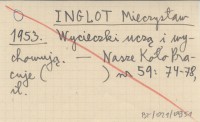 INGLOT Mieczysław
1953. Wycieczki uczą i wy-
chowują. — Nasze Koło Pra-
cuje ( ) nr 59: 74-78,
il.